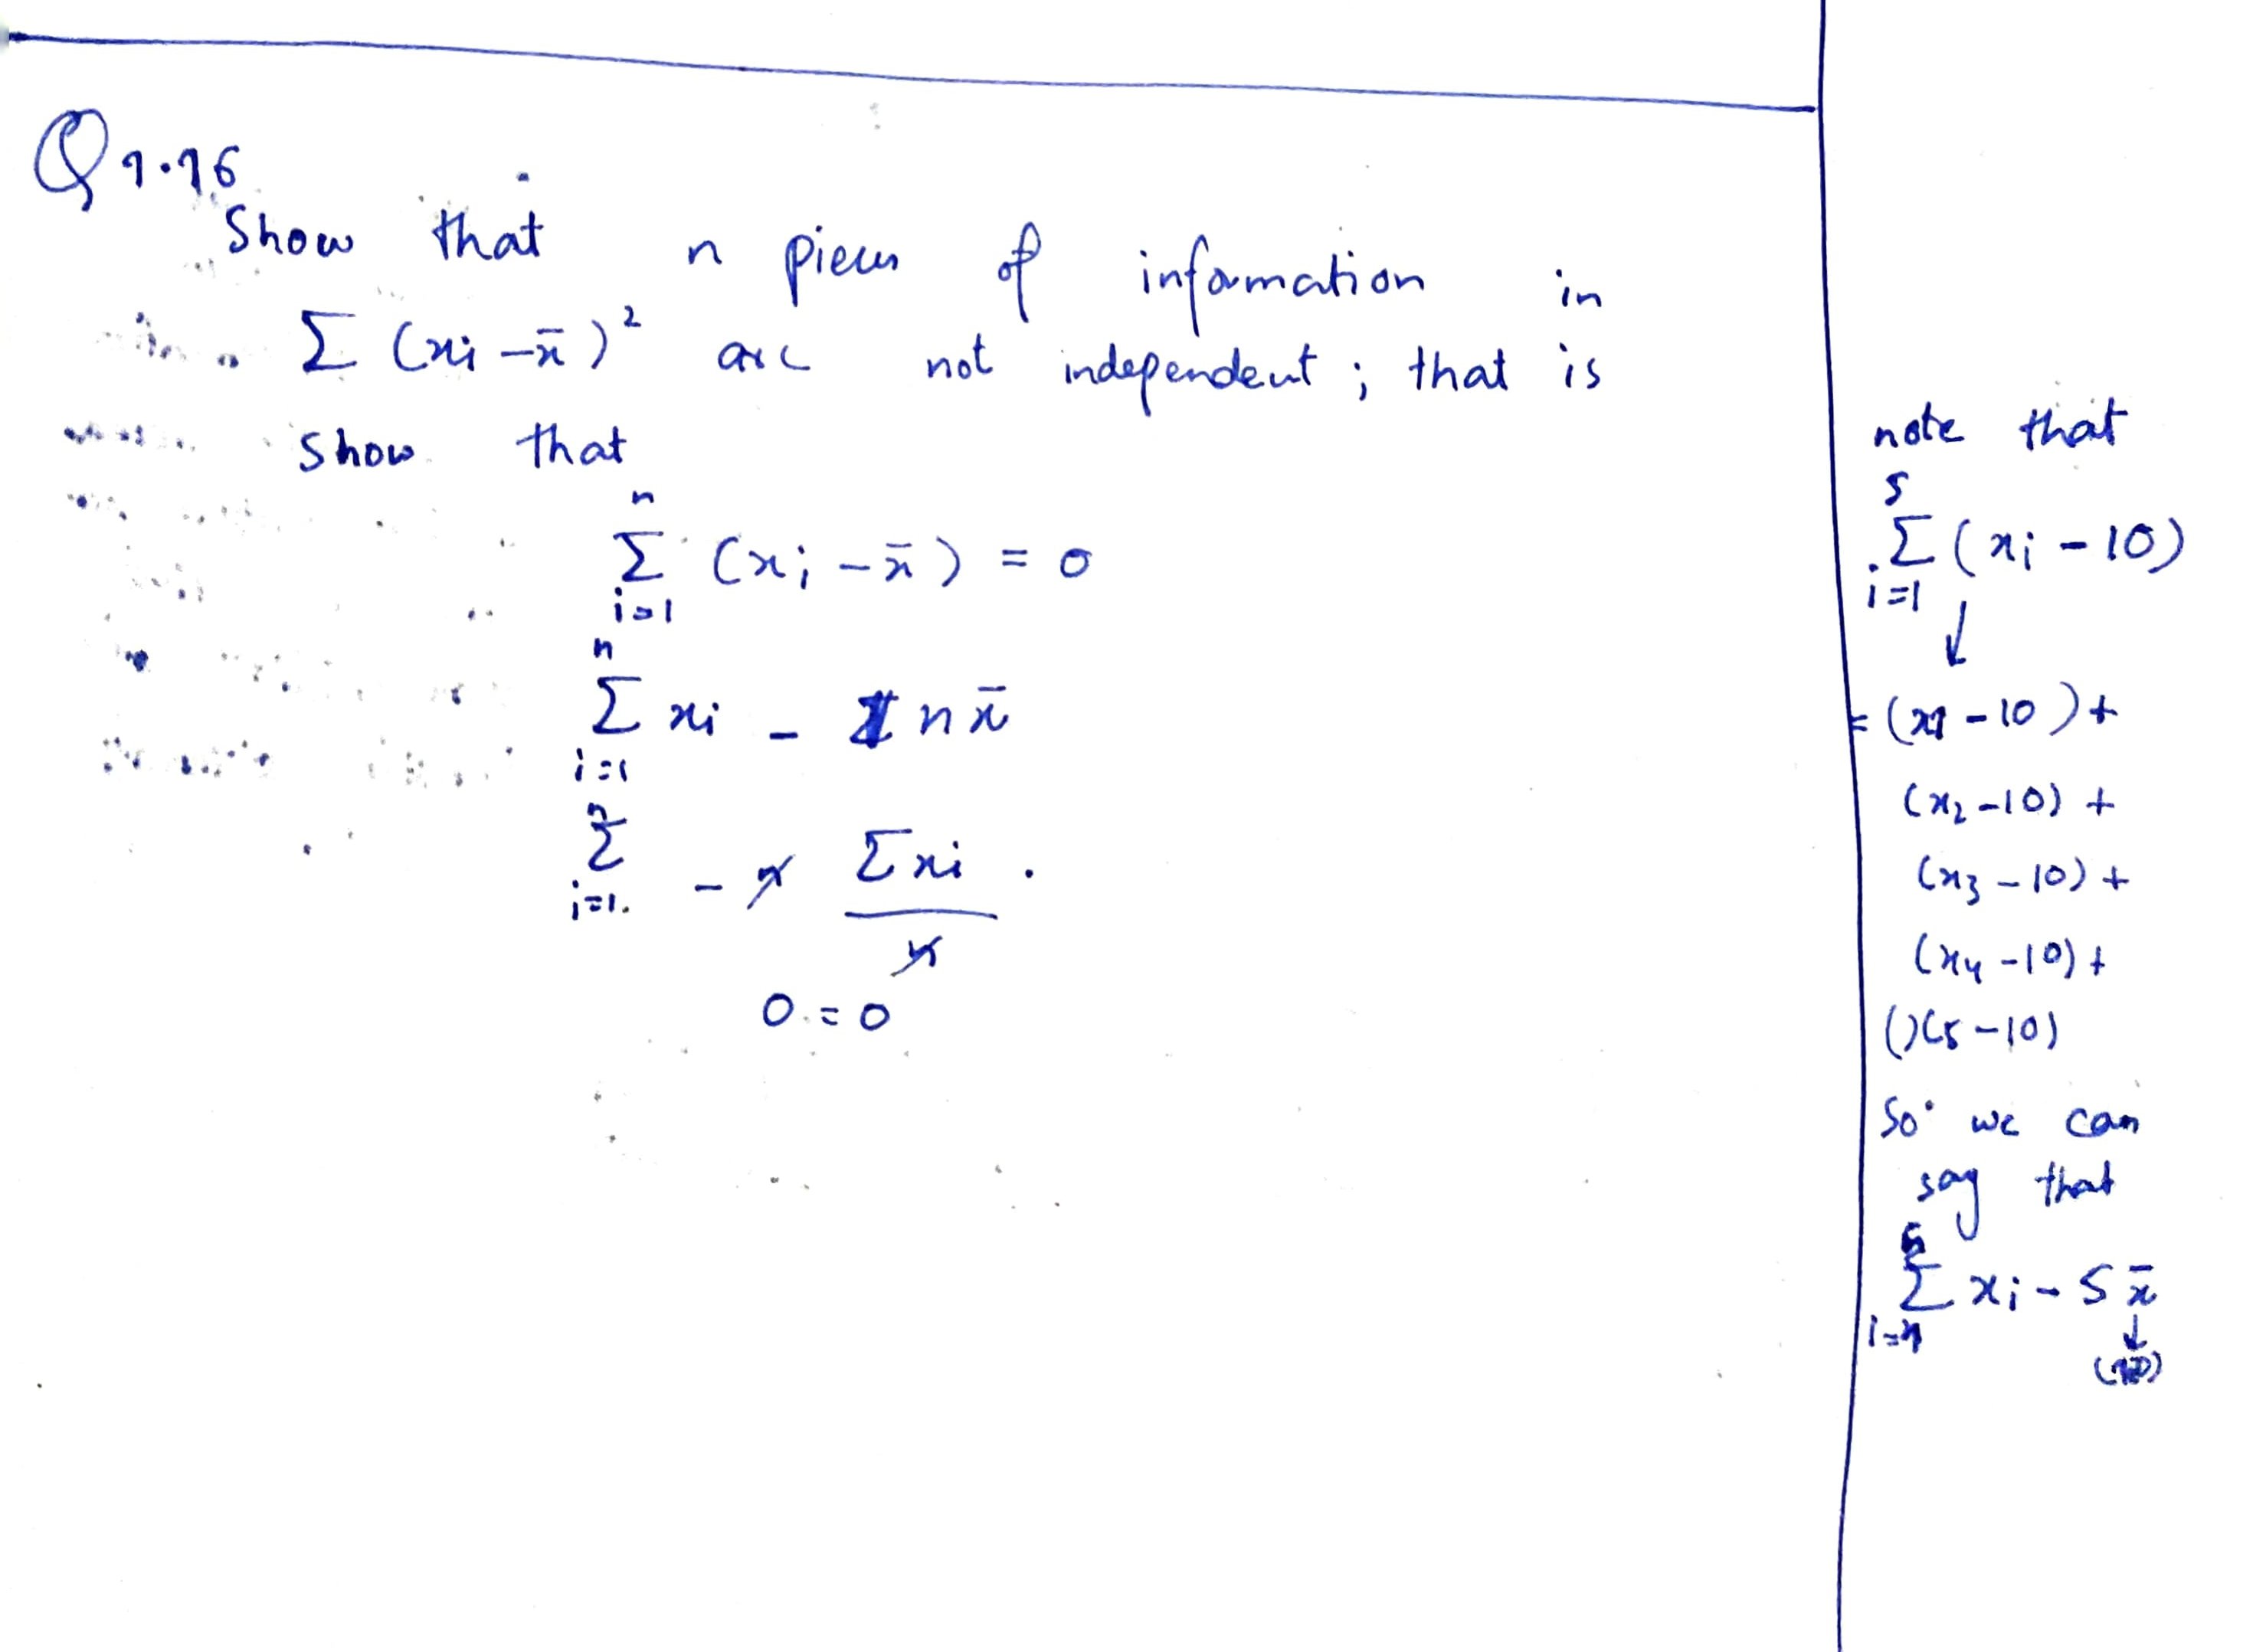 Q 1.16
Show that n pieces of information in
Σ (xi - x̄)² are not independent ; that is
show that
n
Σ (xi - x̄) = 0
i=1
n
Σ xi - n x̄
i=1
n
Σ - n Σxi .
i=1. n
0 = 0
note that
5
Σ (xi - 10)
i=1
↓
= (x1 - 10) +
(x2 - 10) +
(x3 - 10) +
(x4 - 10) +
(x5 - 10)
So we can
say that
Σ xi - 5 x̄
↓
(10)